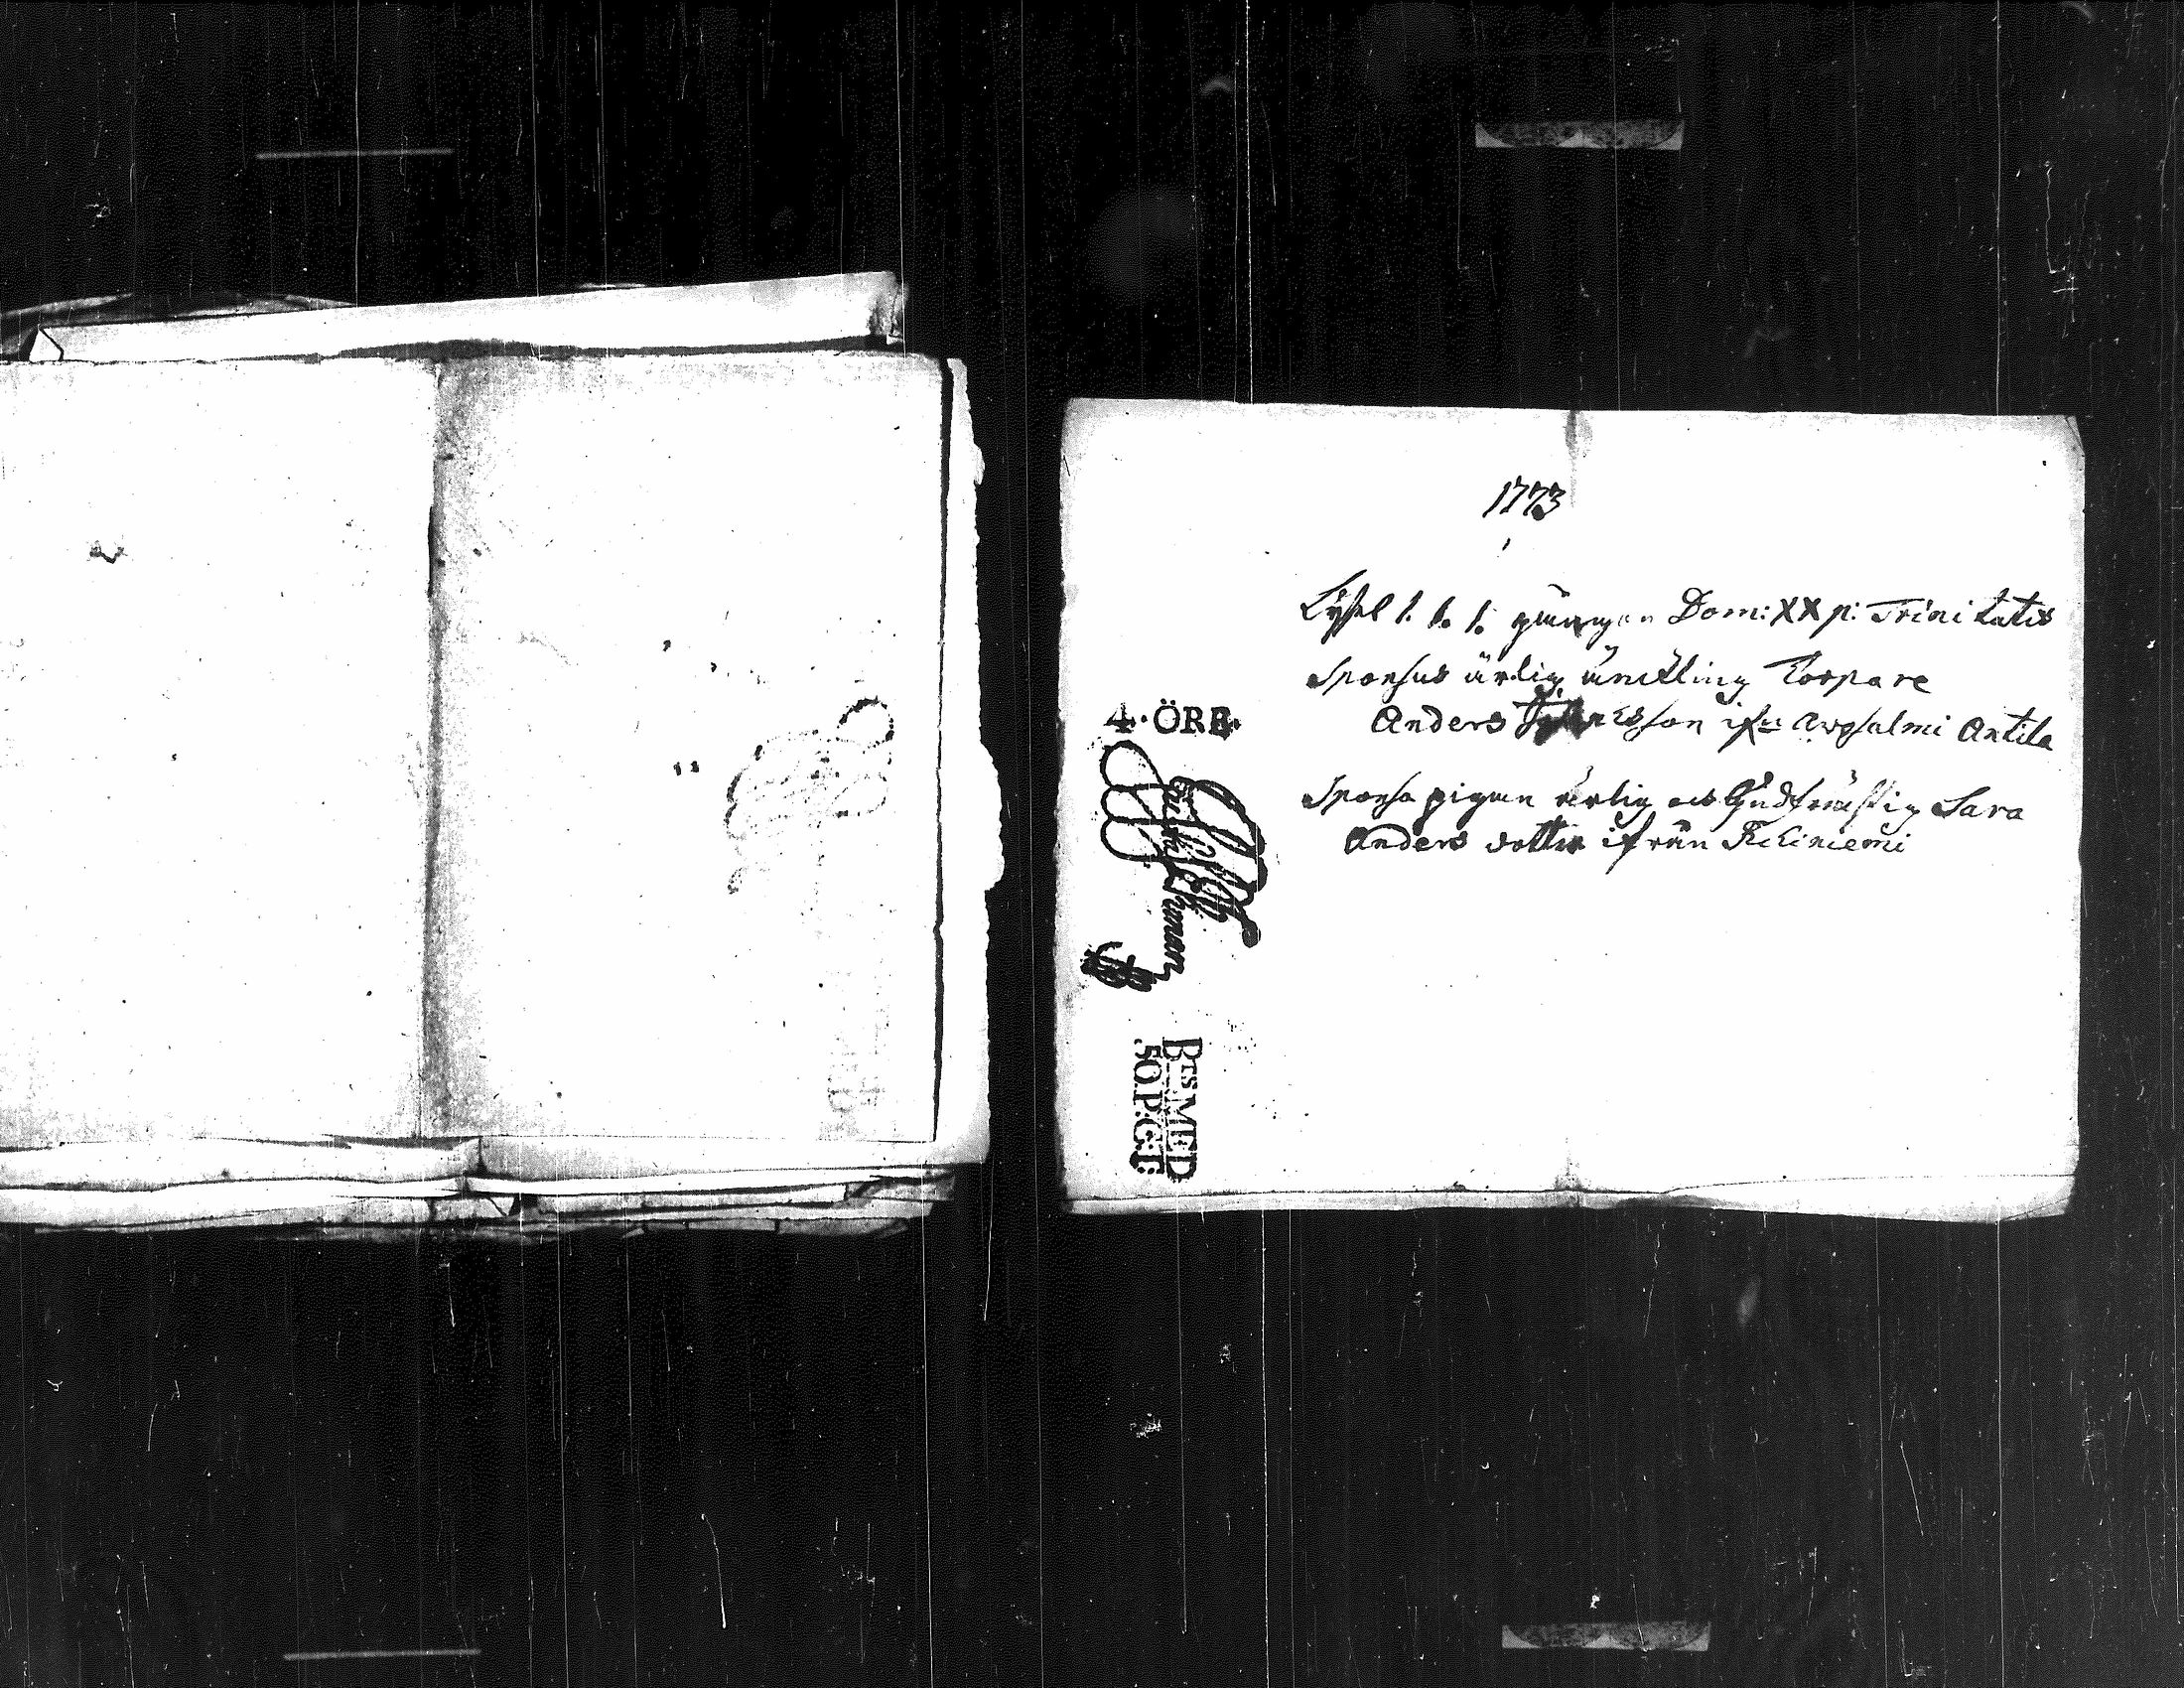 1773
Lyses 1. 1. 1. gången Dom: XX p: Trinitatis
Sponsus ärlig änckling Torpare
Anders son ifr: Arpsalmi Antila
Sponsa pigan ärlig och Gudfrucktig Sara
Anders dotter ifrån Rekiniemi
4·ÖRE·
BTS MED
50.P:CT: